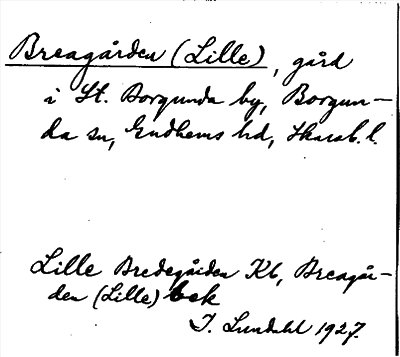 Breagården (Lille), gård
i St. Borgunda by, Borgun-
da sn, Gudhems hd, Skarab. l.
Lille Bredegården Kb, Breagår-
den (Lille) bek
I. Lundahl 1927.